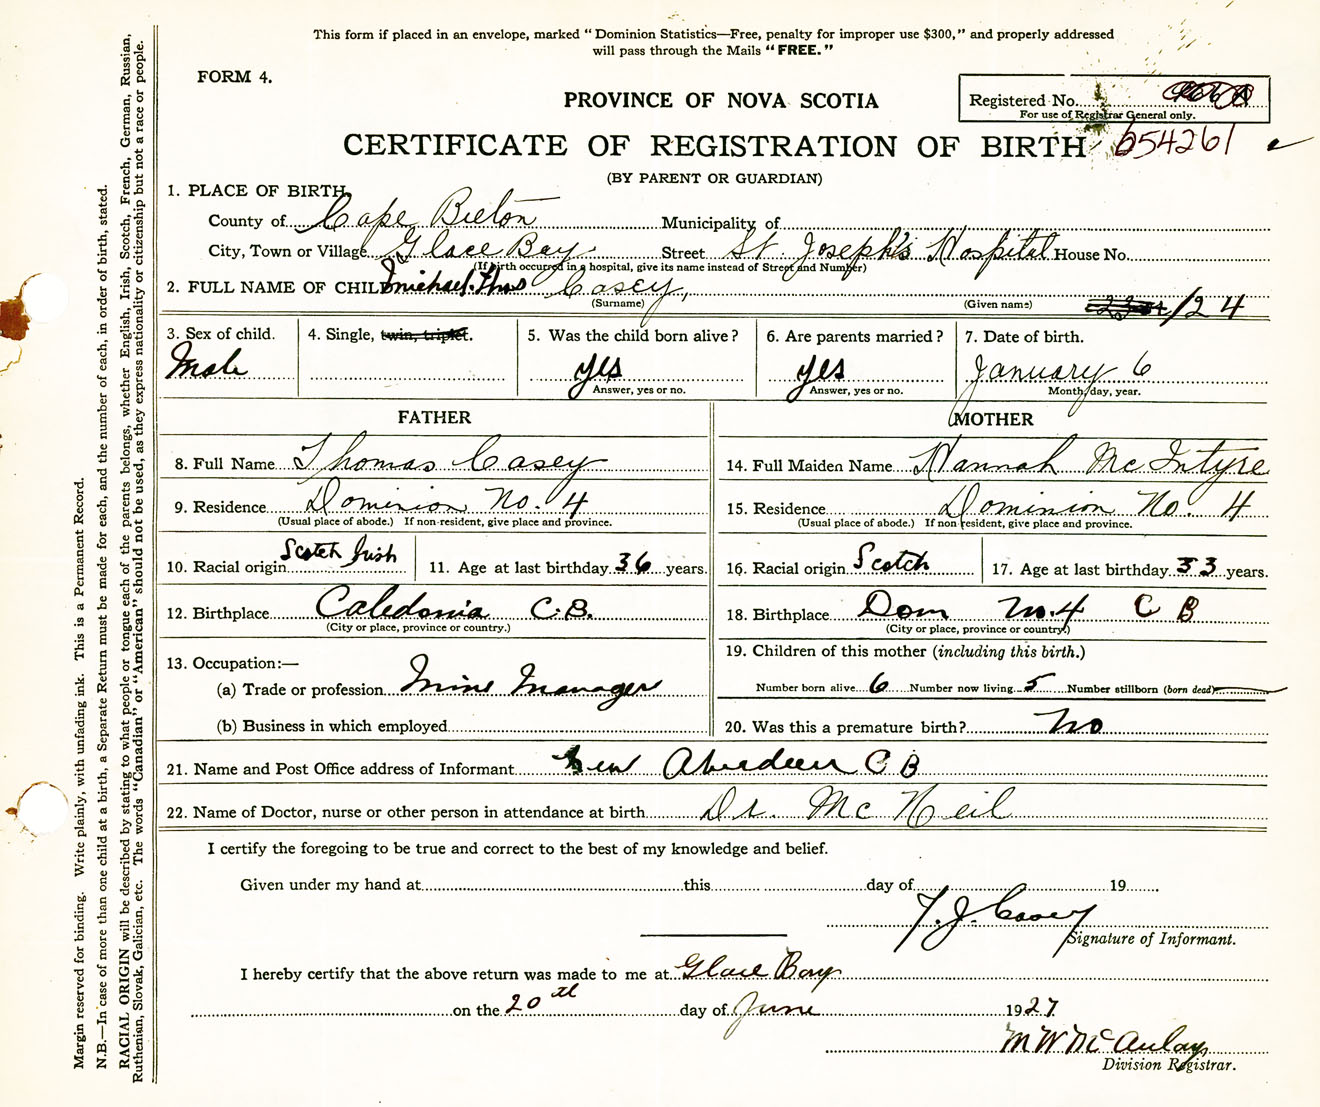 This form if placed in an envelope, marked "Dominion Statistics—Free, penalty for improper use $300," and properly addressed
will pass through the Mails "FREE."
FORM 4.
PROVINCE OF NOVA SCOTIA
Registered No.
For use of Registrar General only.
CERTIFICATE OF REGISTRATION OF BIRTH 654261
(BY PARENT OR GUARDIAN)
1. PLACE OF BIRTH,
County of Cape Breton Municipality of
City, Town or Village Glace Bay Street St. Joseph's Hospital House No.
(If birth occurred in a hospital, give its name instead of Street and Number)
2. FULL NAME OF CHILD Michael Thos Casey,
(Surname) (Given name) /24
3. Sex of child. 4. Single, twin, triplet. 5. Was the child born alive? 6. Are parents married? 7. Date of birth.
Male yes yes January 6
Answer, yes or no. Answer, yes or no. Month, day, year.
FATHER MOTHER
8. Full Name Thomas Casey 14. Full Maiden Name Hannah McIntyre
9. Residence Dominion No. 4 15. Residence Dominion No. 4
(Usual place of abode.) If non-resident, give place and province. (Usual place of abode.) If non resident, give place and province.
10. Racial origin Scotch Irish 11. Age at last birthday 36 years. 16. Racial origin Scotch 17. Age at last birthday 33 years.
12. Birthplace Caledonia C.B. 18. Birthplace Dom No. 4 C B
(City or place, province or country.) (City or place, province or country.)
13. Occupation:— 19. Children of this mother (including this birth.)
(a) Trade or profession Mine Manager Number born alive 6 Number now living 5 Number stillborn (born dead)
(b) Business in which employed 20. Was this a premature birth? No
21. Name and Post Office address of Informant New Aberdeen C B
22. Name of Doctor, nurse or other person in attendance at birth Dr. McNeil
I certify the foregoing to be true and correct to the best of my knowledge and belief.
Given under my hand at this day of 19
T. J. Casey
Signature of Informant.
I hereby certify that the above return was made to me at Glace Bay
on the 20th day of June 1927
M W McAulay
Division Registrar.
Margin reserved for binding. Write plainly, with unfading ink. This is a Permanent Record.
N.B.—In case of more than one child at a birth, a Separate Return must be made for each, and the number of each, in order of birth, stated.
RACIAL ORIGIN will be described by stating to what people or tongue each of the parents belongs, whether English, Irish, Scotch, French, German, Russian,
Ruthenian, Slovak, Galician, etc. The words "Canadian" or "American" should not be used, as they express nationality or citizenship but not a race or people.